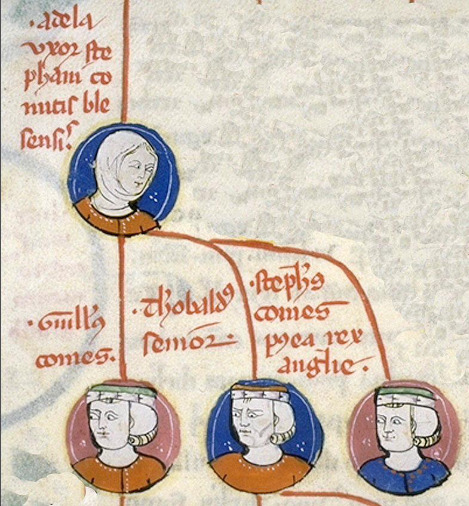 ·adela
vxor ste
phani co
mitis ble
sensis.
·Guill's
comes.
·thobald'
senior·
·steph's
comes
postea rex
anglie·